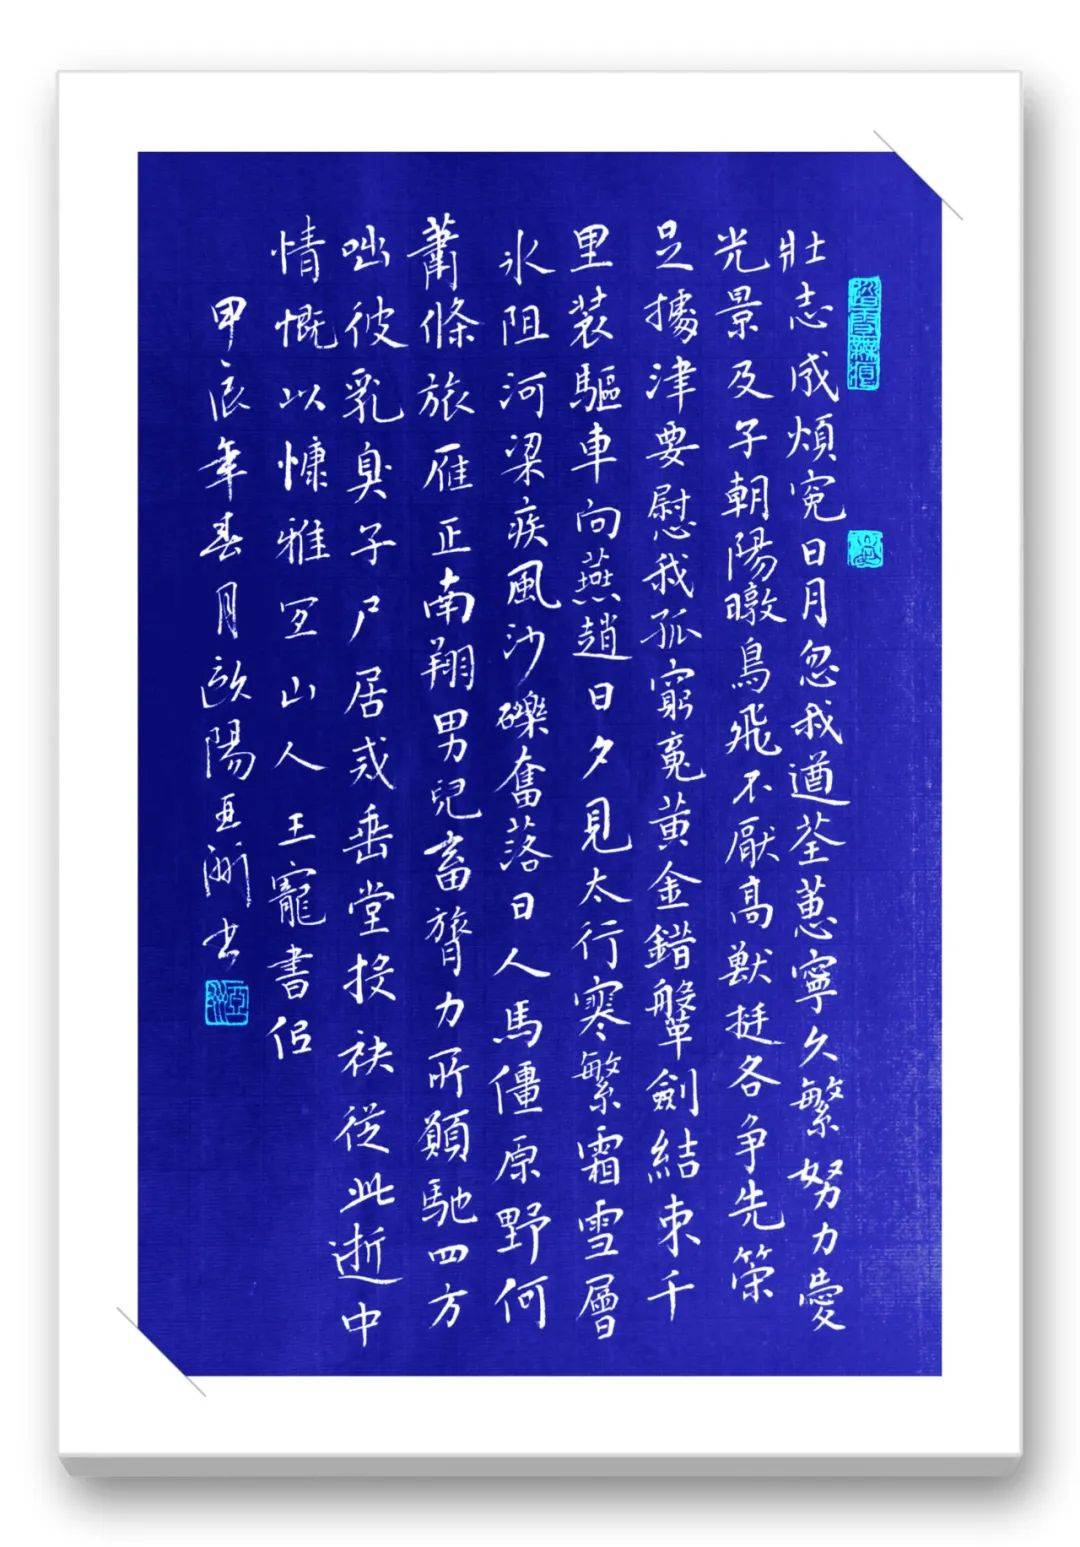 壯志成煩寃日月忽我遒荃蕙寧久繁努力愛
光景及子朝陽暾鳥飛不厭高獸挺各争先策
足據津要慰我孤窮寃黄金錯鞶劍結束千
里装驅車向燕趙日夕見太行寒繁霜雪層
氷阻河梁疾風沙礫奮落日人馬僵原野何
蕭條旅雁正南翔男兒畜膂力所願馳四方
咄彼乳臭子尸居戒垂堂投袂從此逝中
情慨以慷雅宜山人王寵書侶
甲辰年春月歐陽亞洲書